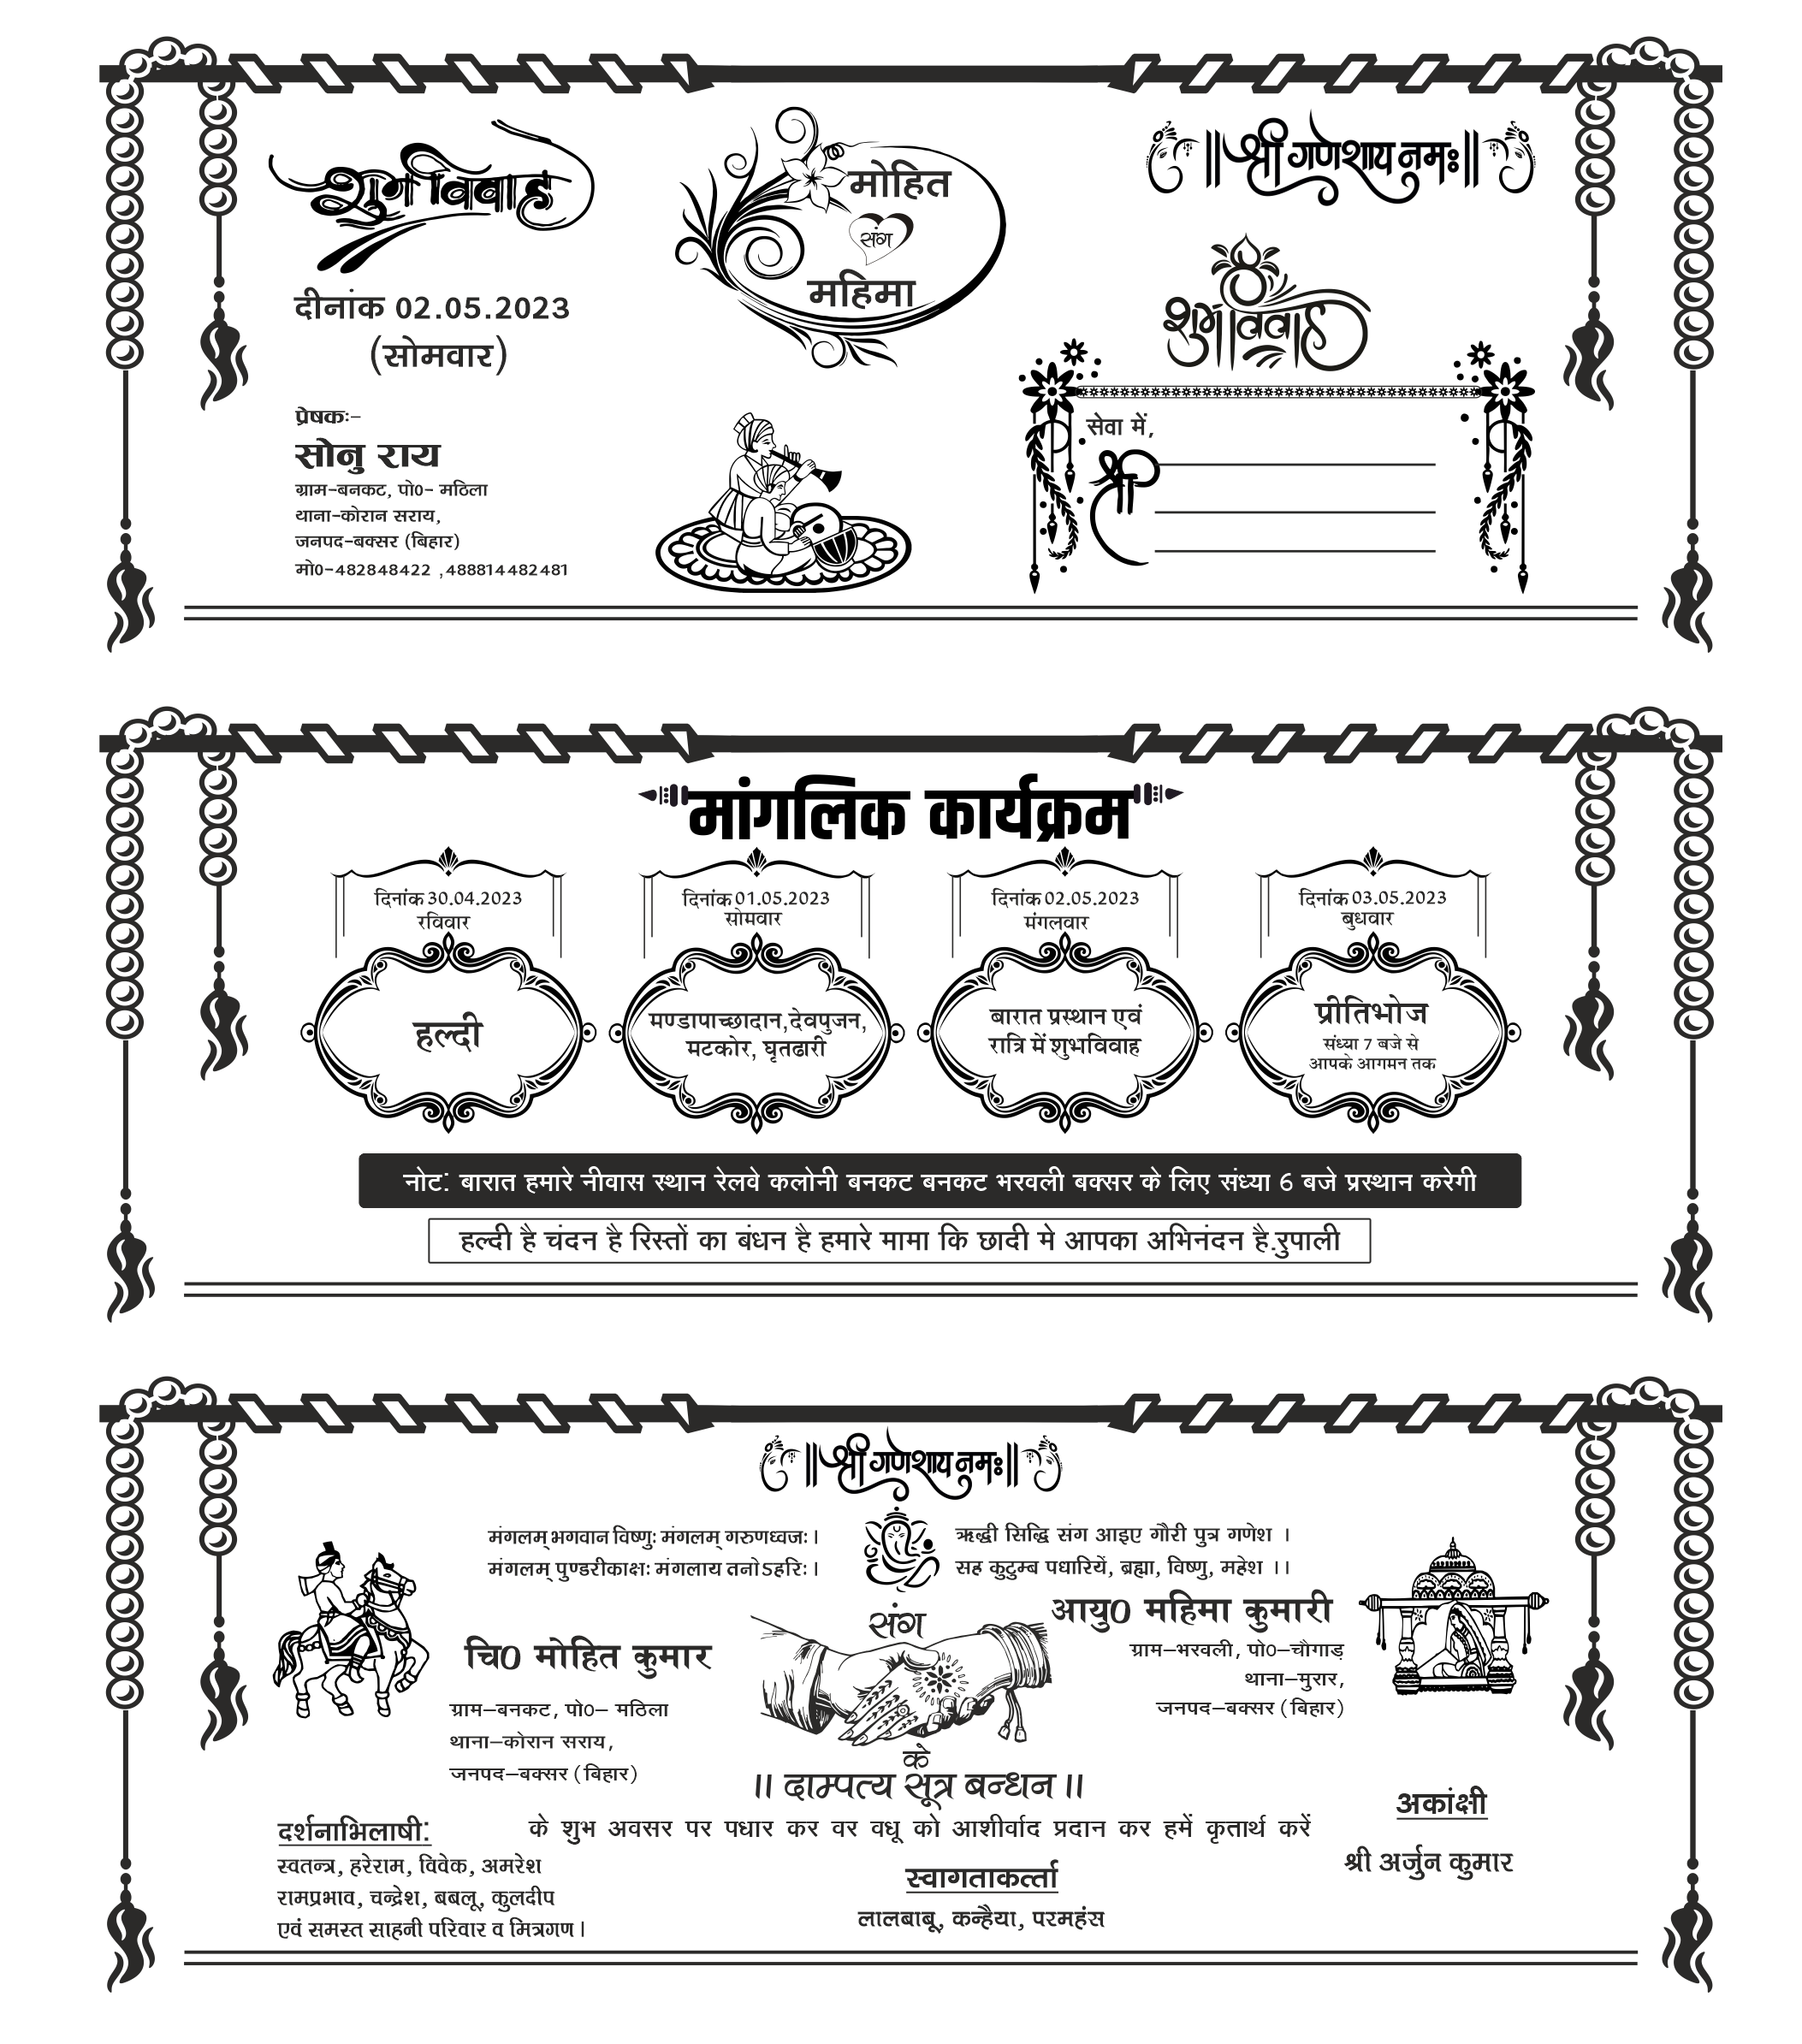 शुभ विवाह
दीनांक 02.05.2023
(सोमवार)
प्रेषकः-
सोनु राय
ग्राम-बनकट, पो0- मठिला
थाना-कोरान सराय,
जनपद-बक्सर (बिहार)
मो0-482848422 ,488814482481
मोहित
संग
महिमा
॥श्री गणेशाय नमः॥
शुभ विवाह
सेवा में,
श्री
मांगलिक कार्यक्रम
दिनांक 30.04.2023
रविवार
हल्दी
दिनांक 01.05.2023
सोमवार
मण्डापाच्छादान,देवपुजन,
मटकोर, घृतढारी
दिनांक 02.05.2023
मंगलवार
बारात प्रस्थान एवं
रात्रि में शुभविवाह
दिनांक 03.05.2023
बुधवार
प्रीतिभोज
संध्या 7 बजे से
आपके आगमन तक
नोट: बारात हमारे नीवास स्थान रेलवे कलोनी बनकट बनकट भरवली बक्सर के लिए संध्या 6 बजे प्रस्थान करेगी
हल्दी है चंदन है रिस्तों का बंधन है हमारे मामा कि छादी मे आपका अभिनंदन है.रुपाली
॥श्री गणेशाय नमः॥
मंगलम् भगवान विष्णुः मंगलम् गरुणध्वजः।
मंगलम् पुण्डरीकाक्षः मंगलाय तनोऽहरिः।
ऋद्धी सिद्धि संग आइए गौरी पुत्र गणेश ।
सह कुटुम्ब पधारियें, ब्रह्मा, विष्णु, महेश ।।
चि0 मोहित कुमार
ग्राम–बनकट, पो0– मठिला
थाना–कोरान सराय,
जनपद–बक्सर (बिहार)
संग
आयु0 महिमा कुमारी
ग्राम–भरवली, पो0–चौगाड़
थाना–मुरार,
जनपद–बक्सर (बिहार)
के
॥ दाम्पत्य सूत्र बन्धन ॥
के शुभ अवसर पर पधार कर वर वधू को आशीर्वाद प्रदान कर हमें कृतार्थ करें
दर्शनाभिलाषी:
स्वतन्त्र, हरेराम, विवेक, अमरेश
रामप्रभाव, चन्द्रेश, बबलू, कुलदीप
एवं समस्त साहनी परिवार व मित्रगण।
स्वागताकर्त्ता
लालबाबू, कन्हैया, परमहंस
अकांक्षी
श्री अर्जुन कुमार